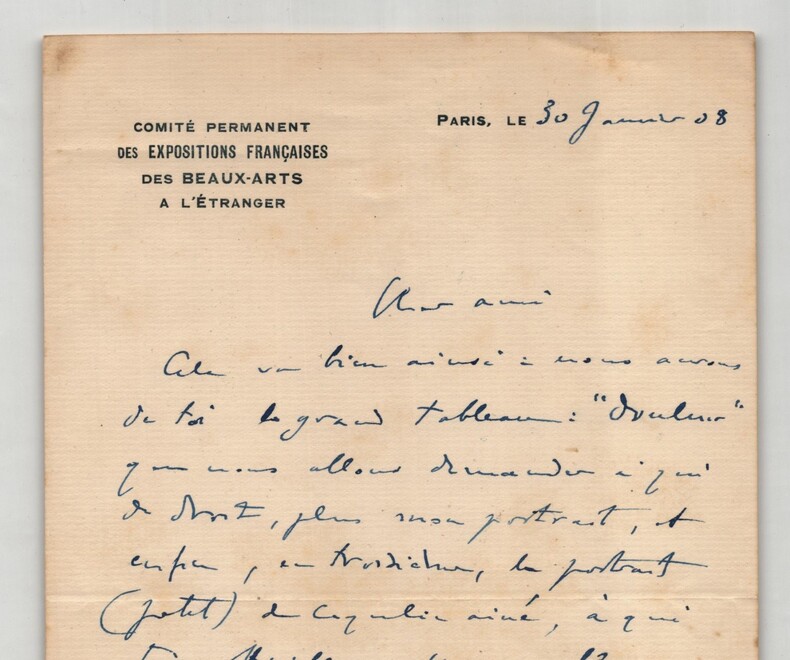 COMITÉ PERMANENT
DES EXPOSITIONS FRANÇAISES
DES BEAUX-ARTS
A L'ÉTRANGER
PARIS, LE 30 Janvier 08
Cher ami
Cela va bien ainsi : nous aurons
de toi le grand tableau : "douleur"
que nous allons demander à qui
de droit, plus mon portrait, et
enfin, en troisième, le portrait
(petit) de Coquelin ainé, à qui